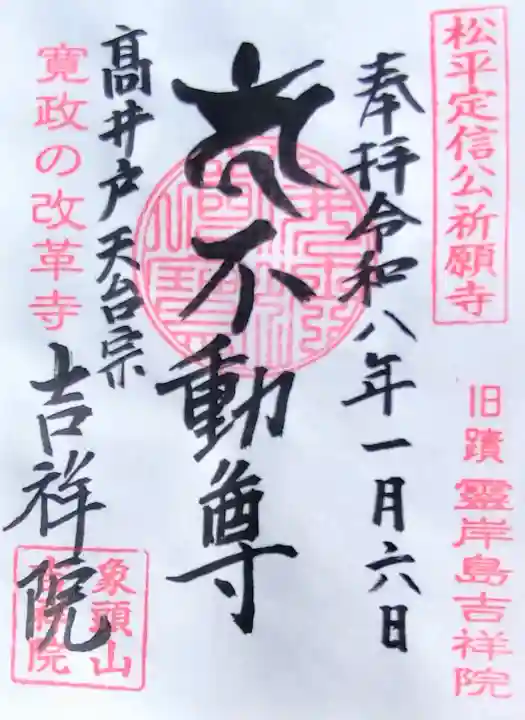 松平定信公祈願寺
旧蹟 霊岸島吉祥院
奉拝令和八年一月六日
不動尊
高井戸天台宗
吉祥院
寛政の改革寺
象頭山